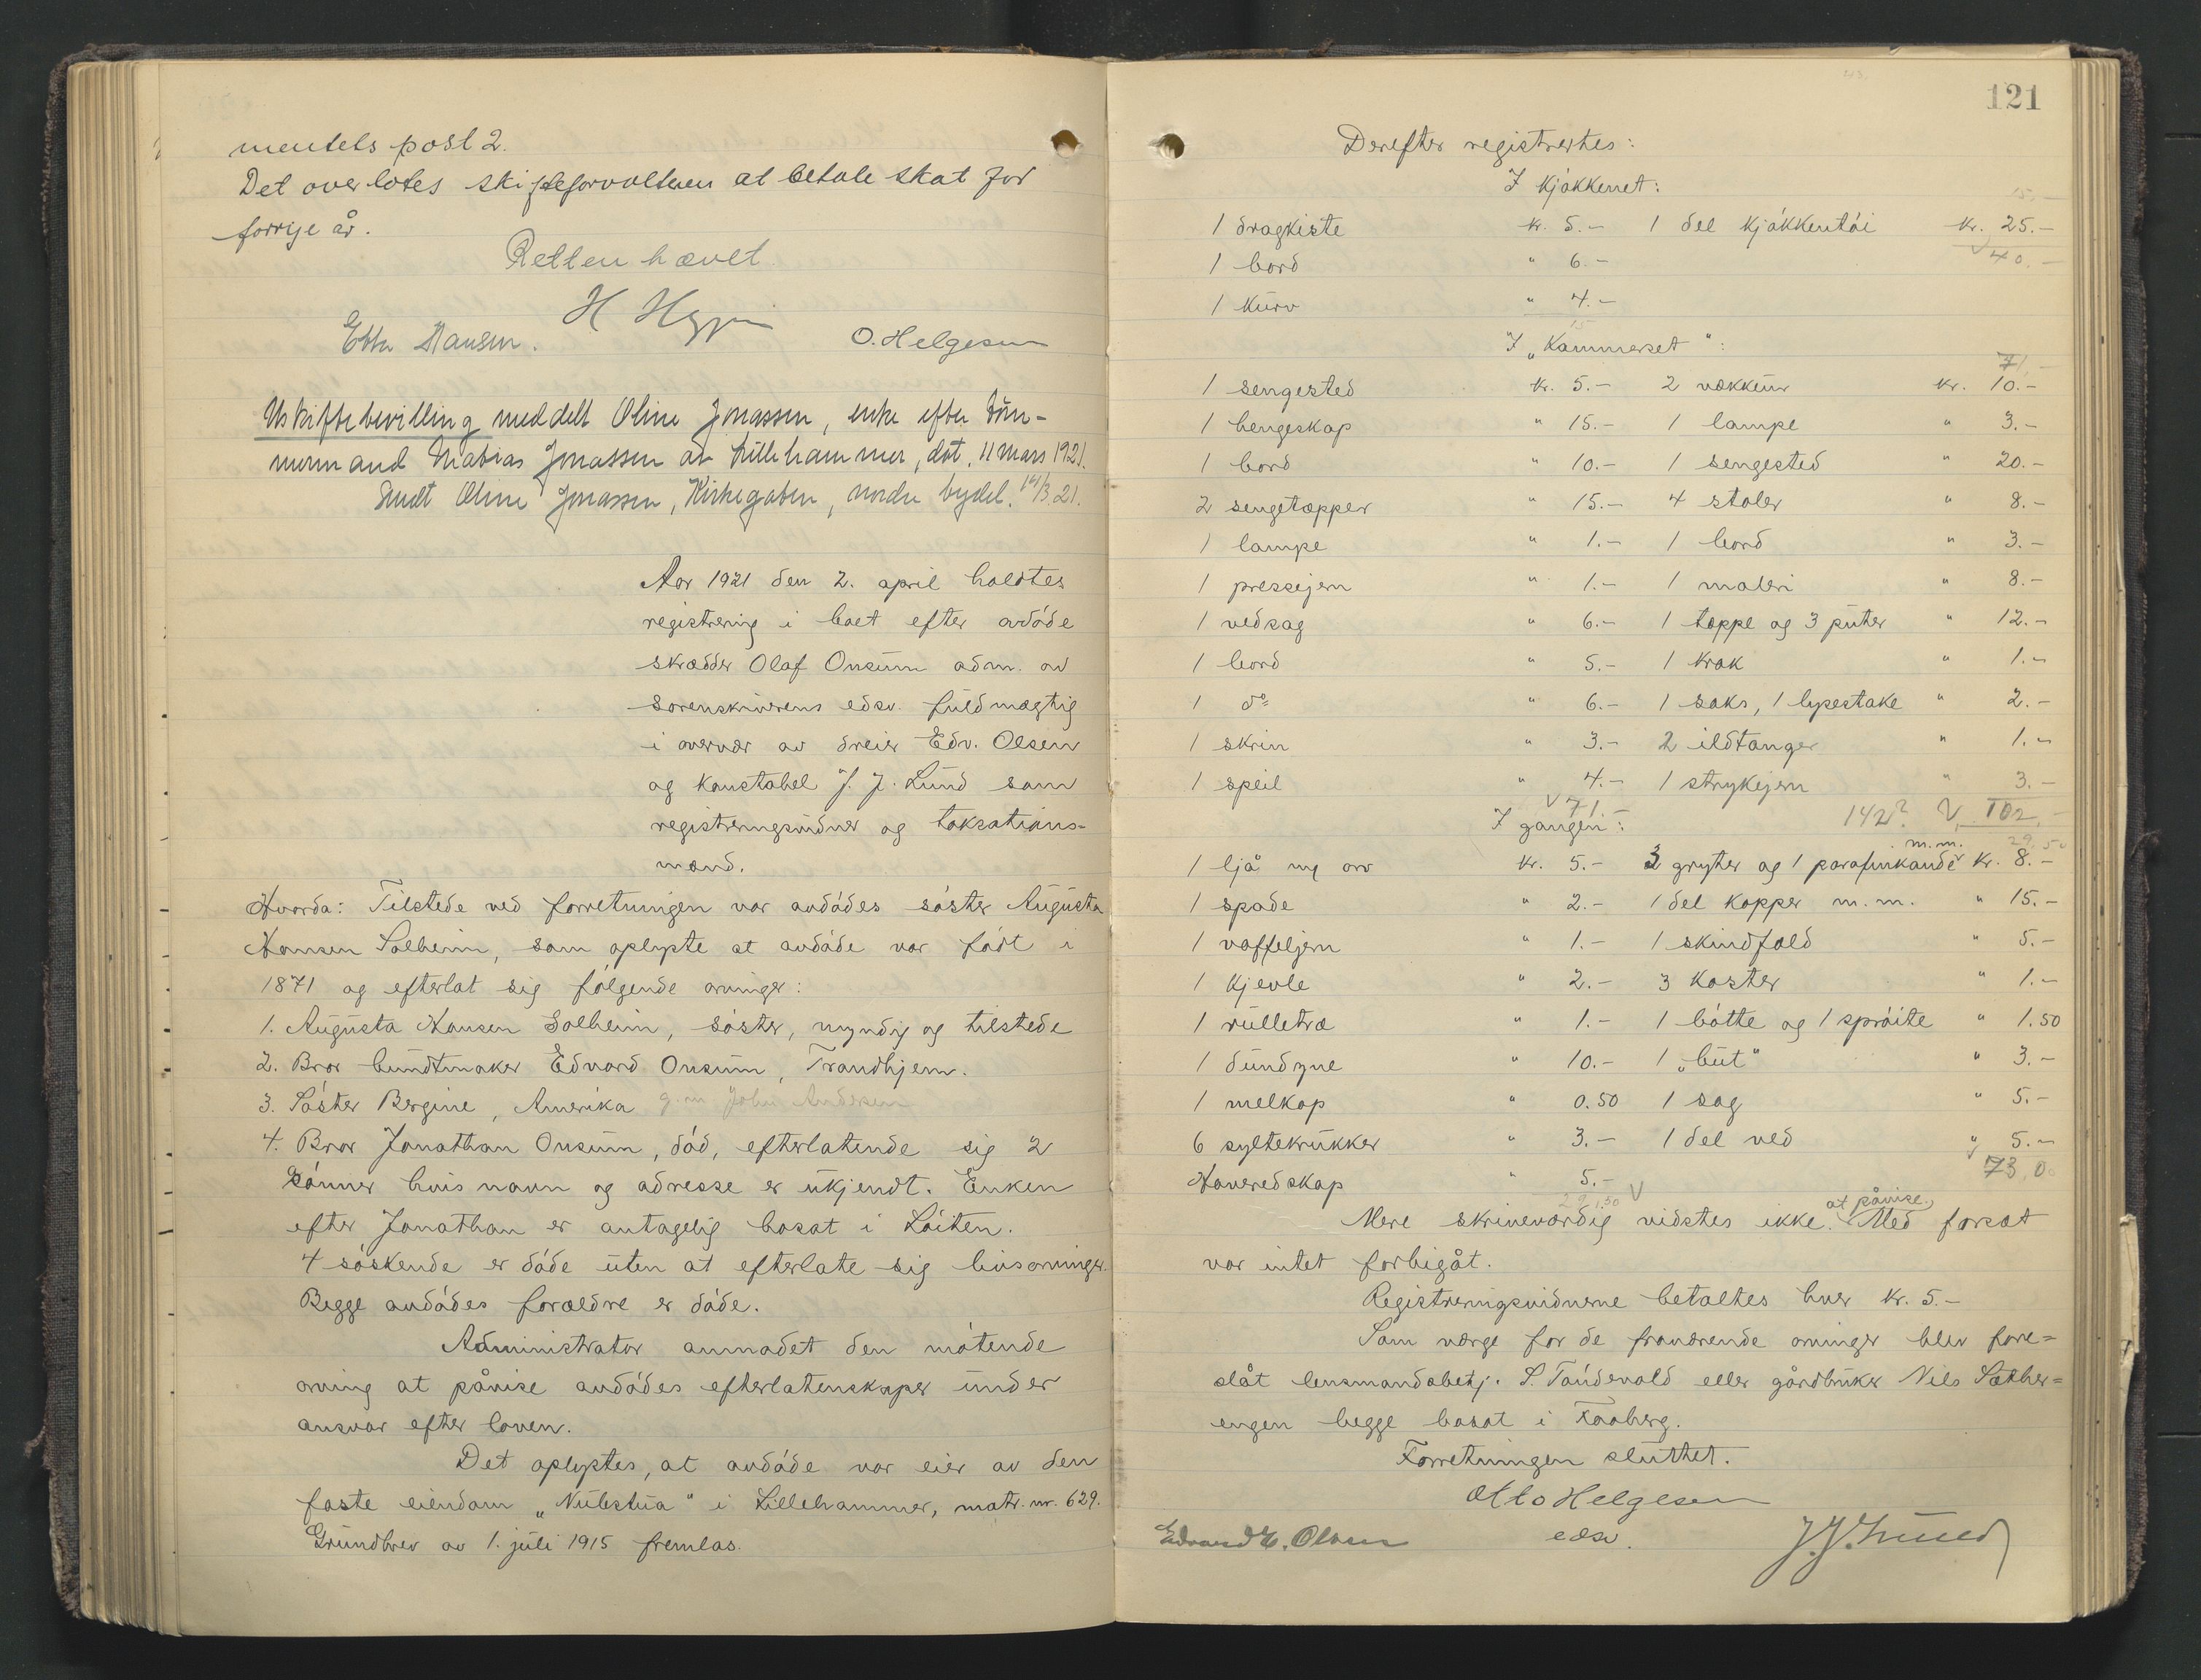 mentets post 2.
Det overlotes skifteforvalteren at betale skat for
forrige år.
Retten hævet
H H
Hansen. O. Helgesen
Uskiftebevilling meddelt Oline Jonassen, enke efter tøm-
mermand Matias Jonassen av Lillehammer, dat. 11 mars 1921.
Sendt Oline Jonassen, Kirkegaten, nordre bydel. 14/3.21.
Aar 1921 den 2. april holdtes
registrering i boet efter avdøde
skrædder Olaf Onsum adm. av
sorenskriverens edsv. fuldmægtig
i overvær av dreier Edv. Olsen
og konstabel J. J. Lund som
registreringsvidner og taksations-
mænd.
Hvorda: Tilstede ved forretningen var avdødes søster Augusta
Hansen Solheim, som oplyste at avdøde var født i
1871 og efterlot sig følgende arvinger:
1. Augusta Hansen Solheim, søster, myndig og tilstede
2. Bror bundtmaker Edvard Onsum, Trondhjem.
3. Søster Bergine, Amerika g.m. John Andersen
4. Bror Jonathan Onsum, død, efterlatende sig 2
sønner hvis navn og adresse er ukjendt. Enken
efter Jonathan er antagelig bosat i Løiten.
4 søskende er døde uten at efterlate sig livsarvinger.
Begge avdødes forældre er døde.
Administrator anmodet den møtende
arving at påvise avdødes efterlatenskaper under
ansvar efter loven.
Det oplystes, at avdøde var eier av den
faste eiendom „Nülistua" i Lillehammer, matr. nr. 629.
Grundbrev av 1. juli 1915 fremlas.
121
Derefter registrertes:
I kjøkkenet:
15.-
1 dragkiste kr. 5.- 1 del kjøkkentøi kr. 25.-
1 bord " 6.- √ 40.-
1 kurv " 4.-
15
I „Kammerset":
71.-
1 sengested kr. 5.- 2 vækkeur kr. 10.-
1 hengeskap " 15.- 1 lampe " 3.-
1 bord " 10.- 1 sengested " 20.-
2 sengetæpper " 15.- 4 stoler " 8.-
1 lampe " 1.- 1 bord " 3.-
1 pressejern " 1.- 1 maleri " 8.-
1 vedsag " 6.- 1 tæppe og 3 puter " 12.-
1 bord " 5.- 1 krak " 1.-
1 do " 6.- 1 saks, 1 lysestake " 2.-
1 skrin " 3.- 2 ildtanger " 1.-
1 speil " 4.- 1 strykejern " 3.-
√ 71.- 142? √ 102,-
I gangen:
m.m. 29,50
1 ljå og orv kr. 5.- 3 gryter og 1 parafinkande kr. 8.-
1 spade " 2.- 1 del kopper m.m. " 15.-
1 vaffeljern " 1.- 1 skindfæld " 5.-
1 kjevle " 2.- 3 koster " 1.-
1 rulletræ " 1.- 1 bøtte og 1 sprøite " 1.50
1 dundyne " 10.- 1 „büt" " 3.-
1 melkop " 0.50 1 sag " 5.-
6 syltekrukker " 3.- 1 del ved " 5.-
Haveredskap " 5.- √ 73,0
29,50 √
Mere skriveværdig vidstes ikke at påvise. Med forsæt
var intet forbigåt.
Registreringsvidnerne betaltes hver kr. 5.-
Som værge for de fraværende arvinger blev fore-
slåt lensmandsbetj. S. Tandevold eller gårdbruker Nils Sæther-
engen begge bosat i Faaberg.
Forretningen sluttet.
Otto Helgesen
edsv.
Edvard E. Olsen J. J. Lund